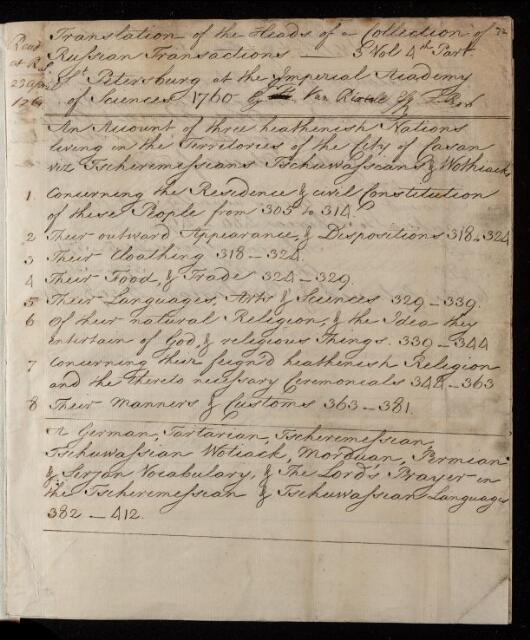 72
Translation of the Heads of a Collection of
Russian Transactions — 3 Vols 4th Part
St Petersburg at the Imperial Academy
of Sciences 1760 by Van
Read
at R.S.
23 April
An Account of three heathenish Nations
living in the Territories of the City of Casan
viz Tscheremessians Tschuwassians & Wothiacks
1 Concerning the Residence & civil Constitution
of these People from 305 to 314.
2 Their outward Appearance & Dispositions 318-324
3 Their Cloathing 318-324.
4 Their Food, & Trade 324-329
5 Their Languages, Arts & Sciences 329-339.
6 Of their natural Religion, & the Idea they
entertain of God, & religious Things. 339-344
7 Concerning their feign'd heathenish Religion
and the thereto necessary Ceremonials 344-363
8 Their Manners & Customs 363-381.
A German, Tartarian, Tscheremessian,
Tschuwassian Wotiack, Morduan, Permian
& Sirjan Vocabulary, & The Lord's Prayer in
the Tscheremessian & Tschuwassian Languages
382-412.